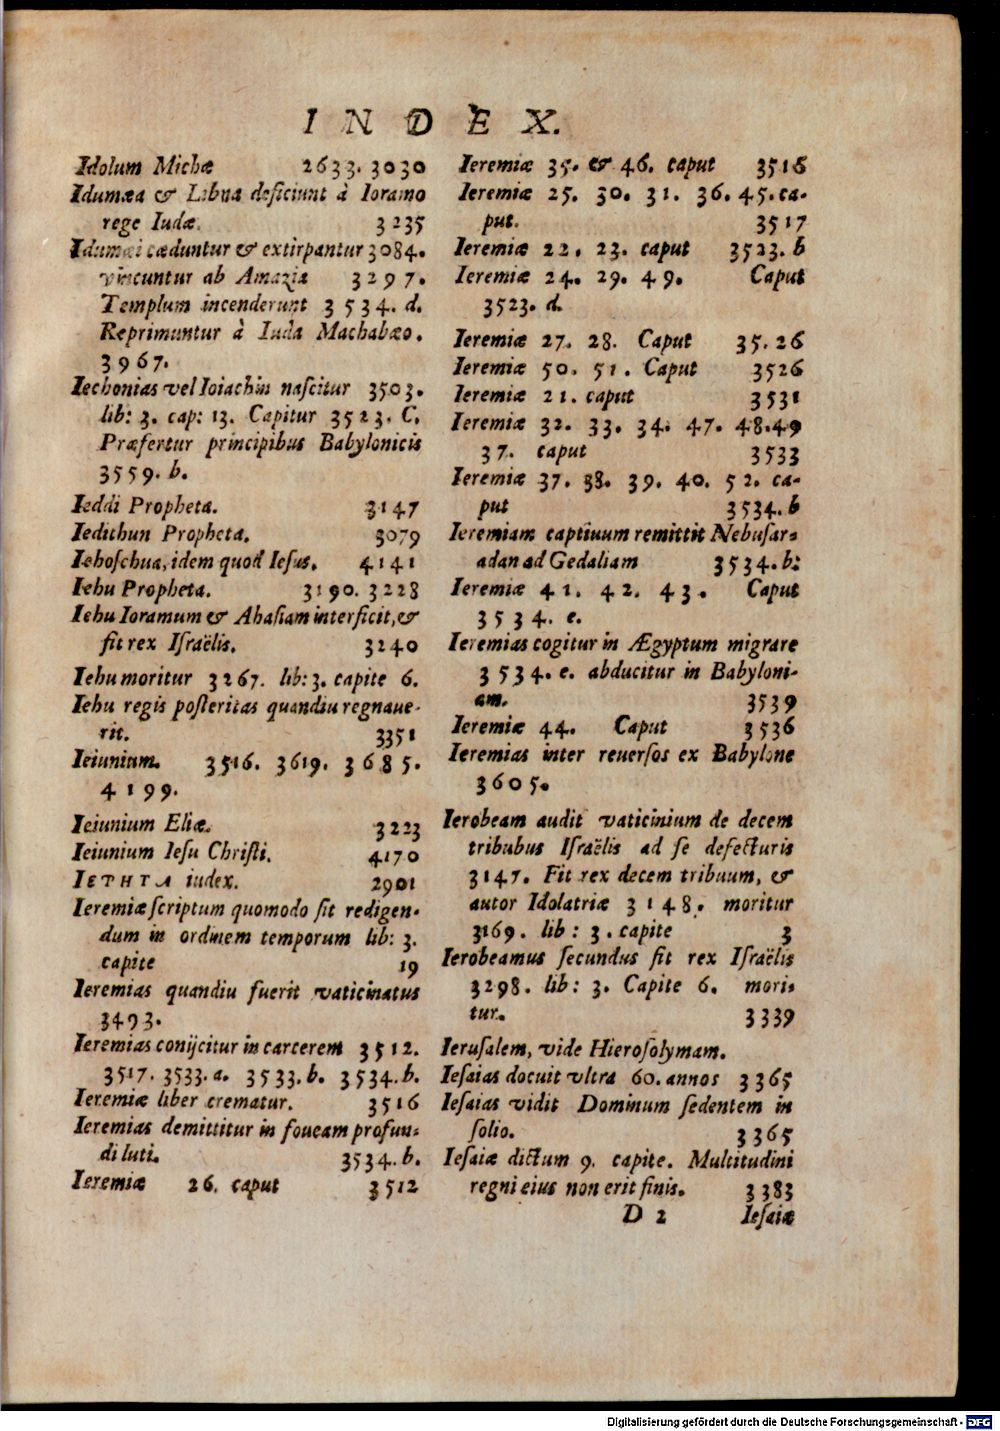 INDEX.
Idolum Michæ 2633. 3030
Idumæa & Libna deficiunt à Ioramo
rege Iudæ. 3235
Idumæi cæduntur & extirpantur 3084.
vincuntur ab Amazia 3297.
Templum incenderunt 3534. d.
Reprimuntur à Iuda Machabæo.
3967.
Iechonias vel Ioiachin naſcitur 3503.
lib: 3. cap: 13. Capitur 3523. C.
Præfertur principibus Babylonicis
3559. b.
Ieddi Propheta. 3147
Iedithun Propheta. 3079
Iehoſchua, idem quod Ieſus. 4141
Iehu Propheta. 3190. 3228
Iehu Ioramum & Ahaſiam interficit, &
fit rex Iſraëlis. 3240
Iehu moritur 3267. lib: 3. capite 6.
Iehu regis poſteritas quandiu regnaue-
rit. 3351
Ieiunium. 3516. 3619. 3685.
4199.
Ieiunium Eliæ. 3223
Ieiunium Ieſu Chriſti. 4170
IEPHTA iudex. 2901
Ieremiæ ſcriptum quomodo ſit redigen-
dum in ordinem temporum lib: 3.
capite 19
Ieremias quandiu fuerit vaticinatus
3493.
Ieremias conijcitur in carcerem 3512.
3517. 3533. a. 3533. b. 3534. b.
Ieremiæ liber crematur. 3516
Ieremias demittitur in foueam profun-
di luti. 3534. b.
Ieremiæ 26. caput 3512
Ieremiæ 35. & 46. caput 3516
Ieremiæ 25. 30. 31. 36. 45. ca-
put. 3517
Ieremiæ 22. 23. caput 3523. b
Ieremiæ 24. 29. 49. Caput
3523. d.
Ieremiæ 27. 28. Caput 35.26
Ieremiæ 50. 51. Caput 3526
Ieremiæ 21. caput 3531
Ieremiæ 32. 33. 34. 47. 48. 49
37. caput 3533
Ieremiæ 37. 38. 39. 40. 52. ca-
put 3534. b
Ieremiam captiuum remittit Nebuſar-
adan ad Gedaliam 3534. b:
Ieremiæ 41. 42. 43. Caput
3534. e.
Ieremias cogitur in Ægyptum migrare
3534. e. abducitur in Babyloni-
am. 3539
Ieremiæ 44. Caput 3536
Ieremias inter reuerſos ex Babylone
3605.
Ierobeam audit vaticinium de decem
tribubus Iſraëlis ad ſe defecturis
3147. Fit rex decem tribuum, &
autor Idolatriæ 3148. moritur
3169. lib: 3. capite 3
Ierobeamus ſecundus fit rex Iſraëlis
3298. lib: 3. Capite 6. mori-
tur. 3339
Ieruſalem, vide Hieroſolymam.
Ieſaias docuit vltra 60. annos 3365
Ieſaias vidit Dominum ſedentem in
ſolio. 3365
Ieſaiæ dictum 9. capite. Multitudini
regni eius non erit finis. 3383
D 2 Ieſaiæ
Digitalisierung gefördert durch die Deutsche Forschungsgemeinschaft - DFG